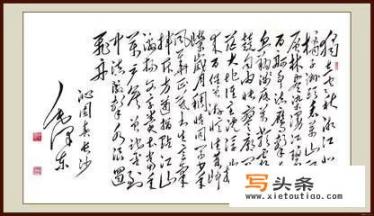 独立寒秋湘江北去
橘子洲头看万山红遍
层林尽染漫江碧透
百舸争流鹰击长空
鱼翔浅底万类霜天
竞自由怅寥廓问苍
茫大地谁主沉浮携
来百侣曾游忆往昔峥
嵘岁月稠恰同学少年
风华正茂书生意气
挥斥方遒指点江山
激扬文字粪土当年
万户侯曾记否到
中流击水浪遏
飞舟
沁园春长沙
毛泽东
写头条